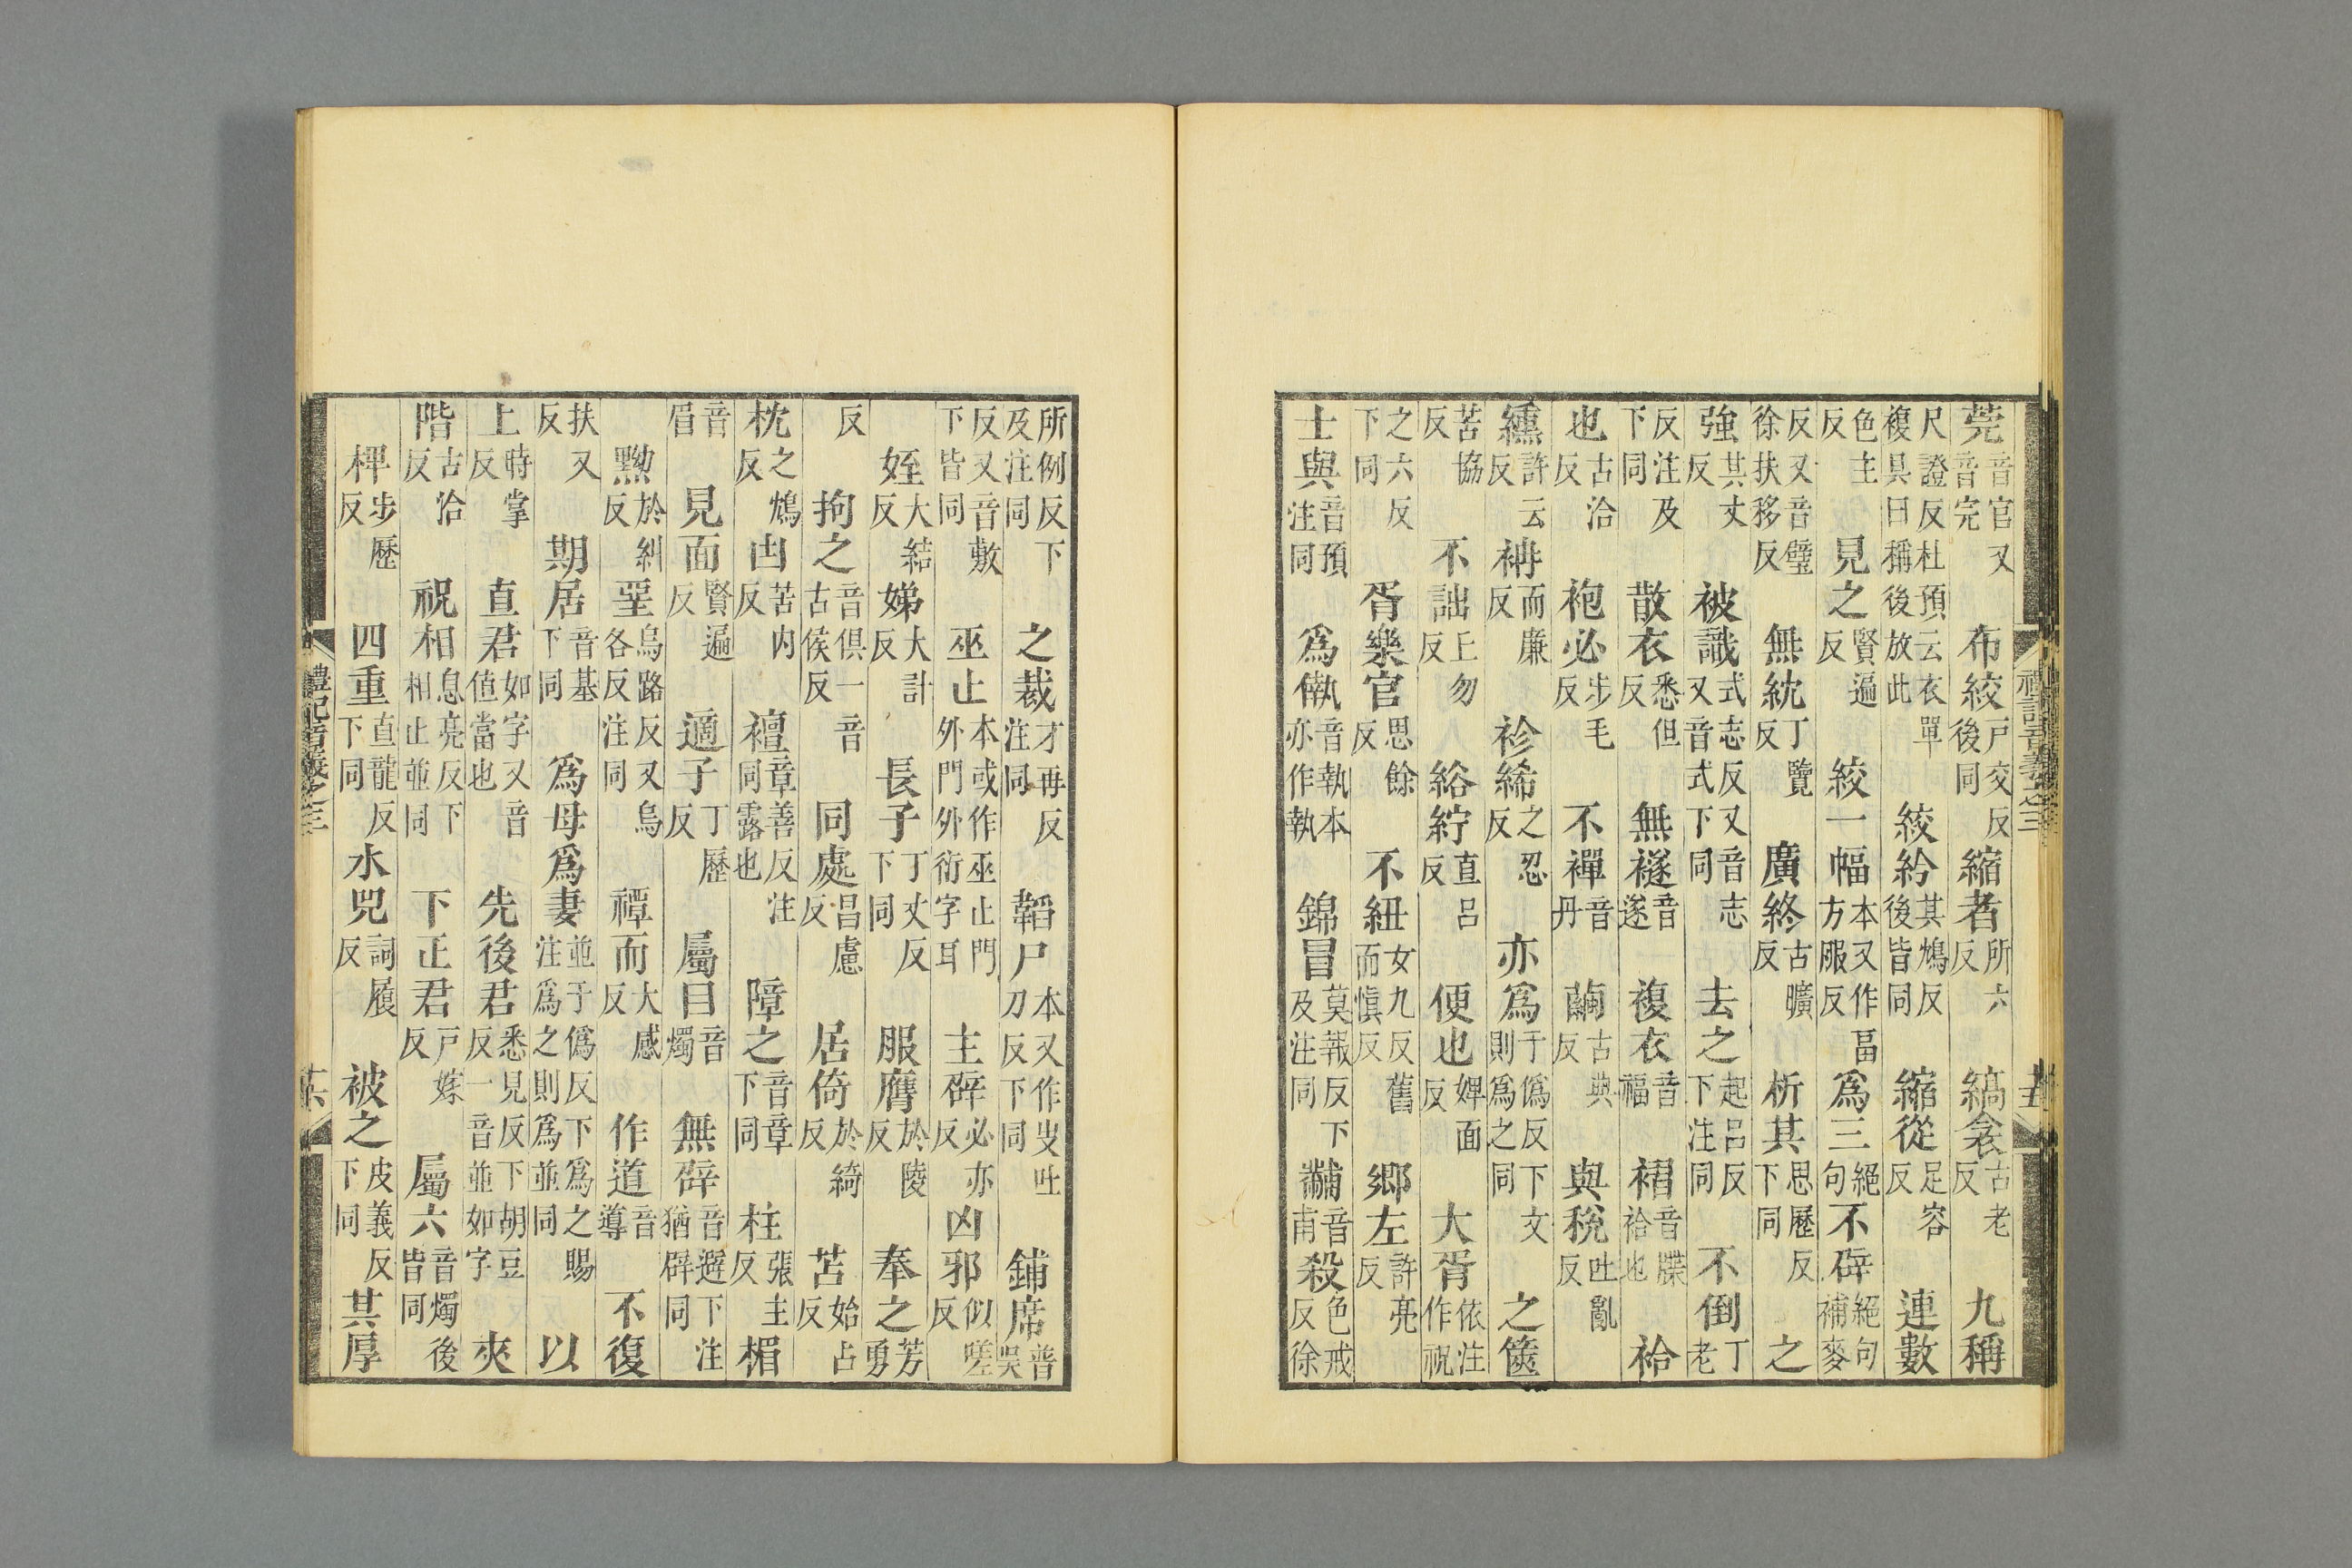 莞音官又音完布絞戶交反後同縮者所六反縞衾古老反九稱
尺證反杜預云衣單複具曰稱後放此絞紟其鴆反後皆同縮從足容反連數
色主反見之賢遍反絞一幅本又作畐方服反爲三絕句不辟絕句補麥
反又音璧徐扶移反無紞丁覽反廣終古曠反析其思歷反下同之
強其丈反被識式志反又音志又音式下同去之起呂反下注同不倒丁老
反注及下同散衣悉但反無襚音遂複衣音福褶音牒袷也袷
也古洽反袍必步毛反不襌音丹繭古典反與稅吐亂反
纁許云反袡而廉反袗絺之忍反亦爲于僞反下文則爲之同之篋
苦協反不詘上勿反綌紵直呂反便也婢面反大胥依注作祝
之六反下同胥樂官思餘反不紐女九反舊而愼反鄉左許亮反
士與音預注同爲僌音執本亦作執錦冒莫報反下及注同黼音甫殺色戒反徐
所例反下及注同之裁才再反注同韜尸本又作㕞吐刀反下同鋪席普吳
反又音敷下皆同巫止本或作巫止門外門外衍字耳主辟必亦反凶邪似嗟反
姪大結反娣大計反長子丁丈反下同服膺於陵反奉之芳勇
反拘之音俱一音古侯反同處昌慮反居倚於綺反苫始占反
枕之鴆反凷苦內反襢章善反注同露也障之音章下同柱張主反楣
音眉見面賢遍反適子丁歷反屬目音燭無辟音避下注猶辟同
黝於糾反堊烏路反又烏各反注同禫而大感反作道音導不復
扶又反期居音基下同爲母爲妻並于僞反下爲之賜注爲之則爲並同以
上時掌反直君如字又音值當也先後君悉見反下胡豆反一音並如字夾
階古洽反祝相息亮反下相止並同下正君戶嫁反屬六音燭後皆同
椑步歷反四重直龍反下同水兕詞履反被之皮義反下同其厚
禮記音義之三